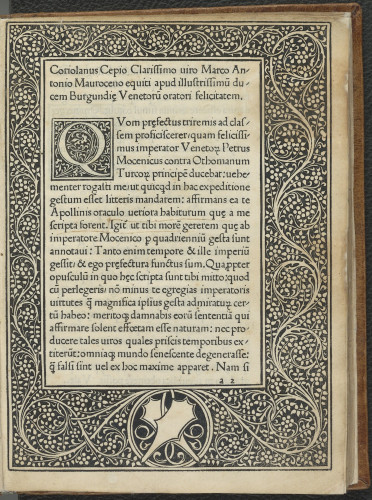 Coriolanus Cepio Clarissimo uiro Marco An-
tonio Mauroceno equiti apud illustrissimū du-
cem Burgundię Venetorū oratori felicitatem.
QVom pręfectus triremis ad clas-
sem proficiscerer, quam felicissi-
mus imperator Venetoꝝ Petrus
Mocenicus contra Othomanum
Turcoꝝ principē ducebat: uehe-
menter rogasti me: ut quicqd in hac expeditione
gestum esset litteris mandarem: affirmans ea te
Apollinis oraculo ueriora habiturum quę a me
scripta forent. Igit̄ ut tibi morē gererem quę ab
imperatore Mocenico p quadrienniū gesta sunt
annotaui: Tanto enim tempore & ille imperiū
gessit: & ego pręfectura functus sum. Quapp̱ter
opusculū in quo hęc scripta sunt tibi mitto: quod
cū perlegeris: nō minus te egregias imperatoris
uirtutes q̄ magnifica ipsius gesta admiraturū cer-
tū habeo: meritoqȝ damnabis eorū sententiā qui
affirmare solent effœtam esse naturam: nec pro-
ducere tales uiros quales priscis temporibus ex-
titerūt: omniaqȝ mundo senescente degenerasse:
q̄ falsi sint uel ex hoc maxime apparet. Nam si
a 2